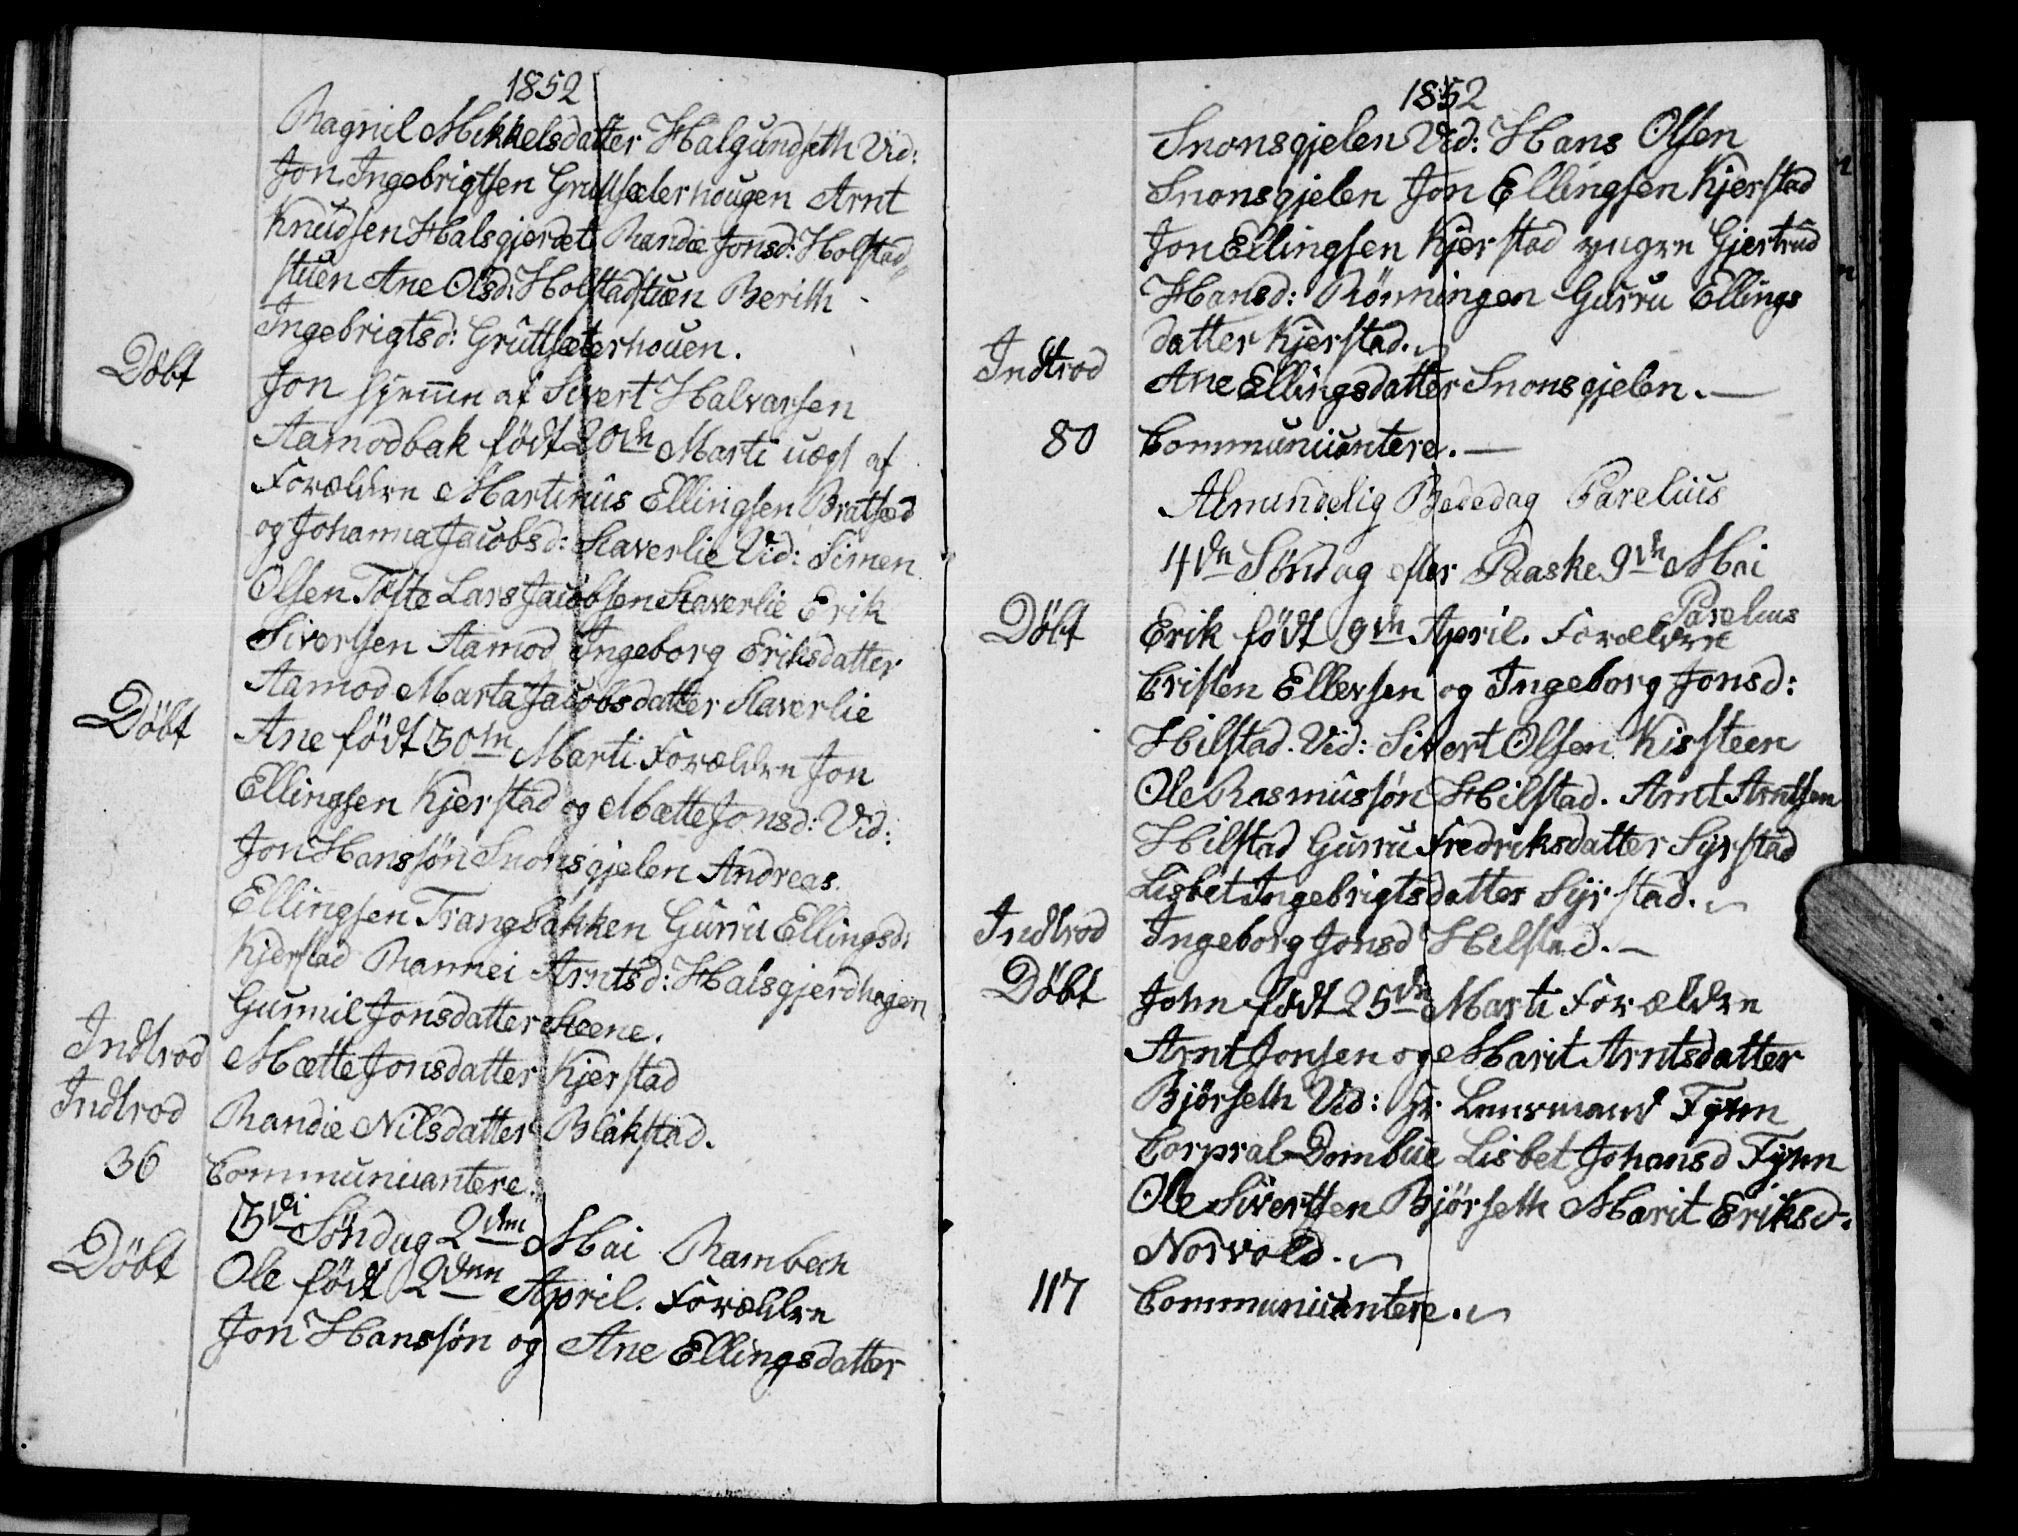 1852
Ragnil Mikkelsdatter Halgundseth Vid:
Jon Ingebrigtsen Gruttsæterhougen Arnt
Knudsen Halsgjerdet Randie Jonsd: Holstad„
stuen Ane Olsd: Holstadstuen Berith
Ingebrigtsd: Gruttsæterhouen.
Döbt Jon hjemme af Sivert Halvarsen
Aamodbak födt 20de Marti uægt af
Forældre Martinus Ellingsen Bratsed
og Johanna Jacobsd: Slaverlie Vid: Simen
Olsen Tofte Lars Jacobsen Slaverlie Erik
Sivertsen Aamod Ingeborg Eriksdatter
Aamod Marta Jacobsdatter Slaverlie
Döbt Ane födt 30te Marti Forældre Jon
Ellingsen Kjerstad og Mætte Jonsd: Vid:
Jon Hanssön Snonsgjelen Andreas
Ellingsen Trangbakken Gurru Ellingsd:
Kjerstad Rannei Arntsd: Halsgjerdhagen
Gunnil Jonsdatter Steene.
Indtrod Mætte Jonsdatter Kjerstad
Indtrod Randie Nilsdatter Blakstad.
36 Communicantere.
3di Söndag 2den Mai Rambech
Döbt Ole födt 2den April. Forældre
Jon Hanssön og Ane Ellingsdatter
1852
Snonsgjelen Vid: Hans Olsen
Snonsgjelen Jon Ellingsen Kjerstad
Jon Ellingsen Kjerstad yngre Gjertrud
Hansd: Rönningen Gurru Ellings
datter Kjerstad.
Indtrod Ane Ellingsdatter Snonsgjelen.—
80 Communicantere.—
Almindelig Bededag Parelius
4de Söndag efter Paaske 9de Mai
Parelius
Döbt Erik födt 9de April. Forældre
Cristen Ellevsen og Ingeborg Jonsd:
Hilstad. Vid: Sivert Olsen Kissteen
Ole Rasmussön Hilstad. Arnt Arntsen
Hilstad Gurru Fredriksdatter Syrstad
Lisbet Ingebrigtsdatter Syrstad.
Indtrod Ingeborg Jonsd Hilstad.—
Döbt John födt 25de Marti Forældre
Arnt Jonsen og Marit Arntsdatter
Björseth Vid: Hr. Lensmand Fyhn
Corpral Dombue Lisbet Johansd Fyhn
Ole Sivertsen Björseth Marit Eriksd.
Norvold.
117 Communicantere.